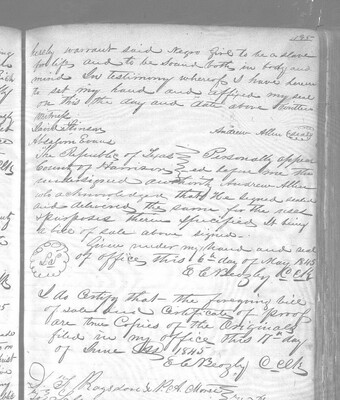 185
hereby warrant said Negro Girl to be a slave
for life and to be sound both in body and
mind In testimony whereof I have hereunto
to set my hand and affixed my seal
on this the day and date above written
Witness
Andrew Allen (seal)
Absalom Evans
The Republic of Texas } Personally appear
County of Harrison } ed before me the
undersigned authority Andrew Allen
who acknowledged that he signed sealed
and delivered the same for the uses
& purposes therein specified It being
a bill of sale above signed
Given under my hand and seal
of office this 6th day of May 1845
L S
C Clk
I do Certify that the foregoing bill
of sale and Certificate of proof
are true Copies of the Originals
filed in my office this 17th day
of June 1845
C Clk